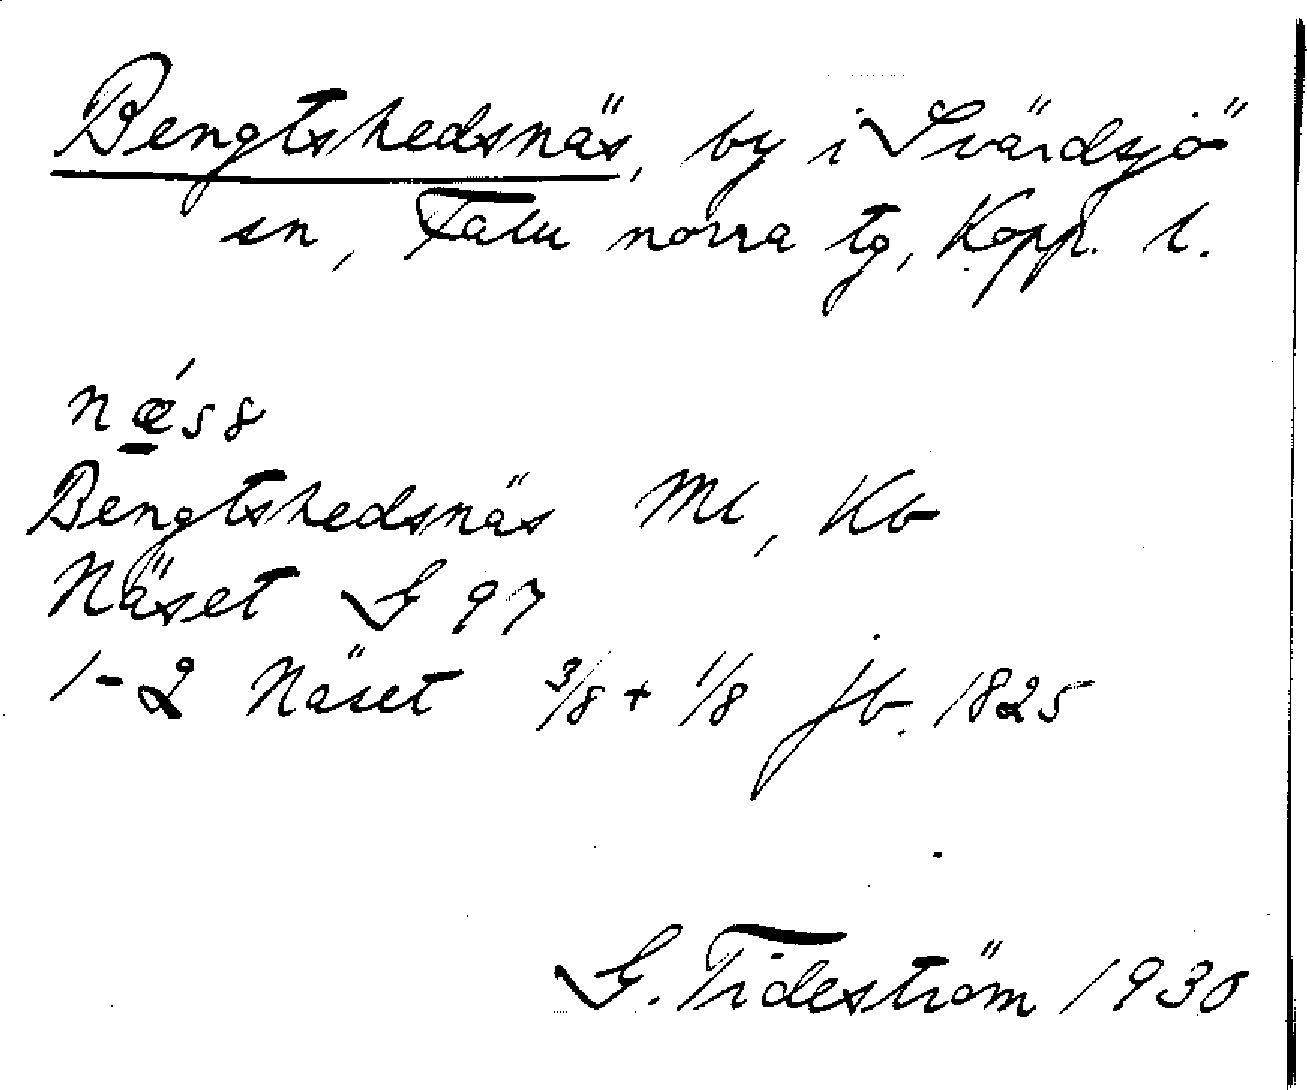 Bengtshedsnäs, by i Svärdsjö
sn, Falu norra tg, Kopp. l.
nǽ̱s8
Bengtshedsnäs Ml, Kb
Näset G 97
1-2 Näset 3/8 + 1/8 jb. 1825
G. Tideström 1930